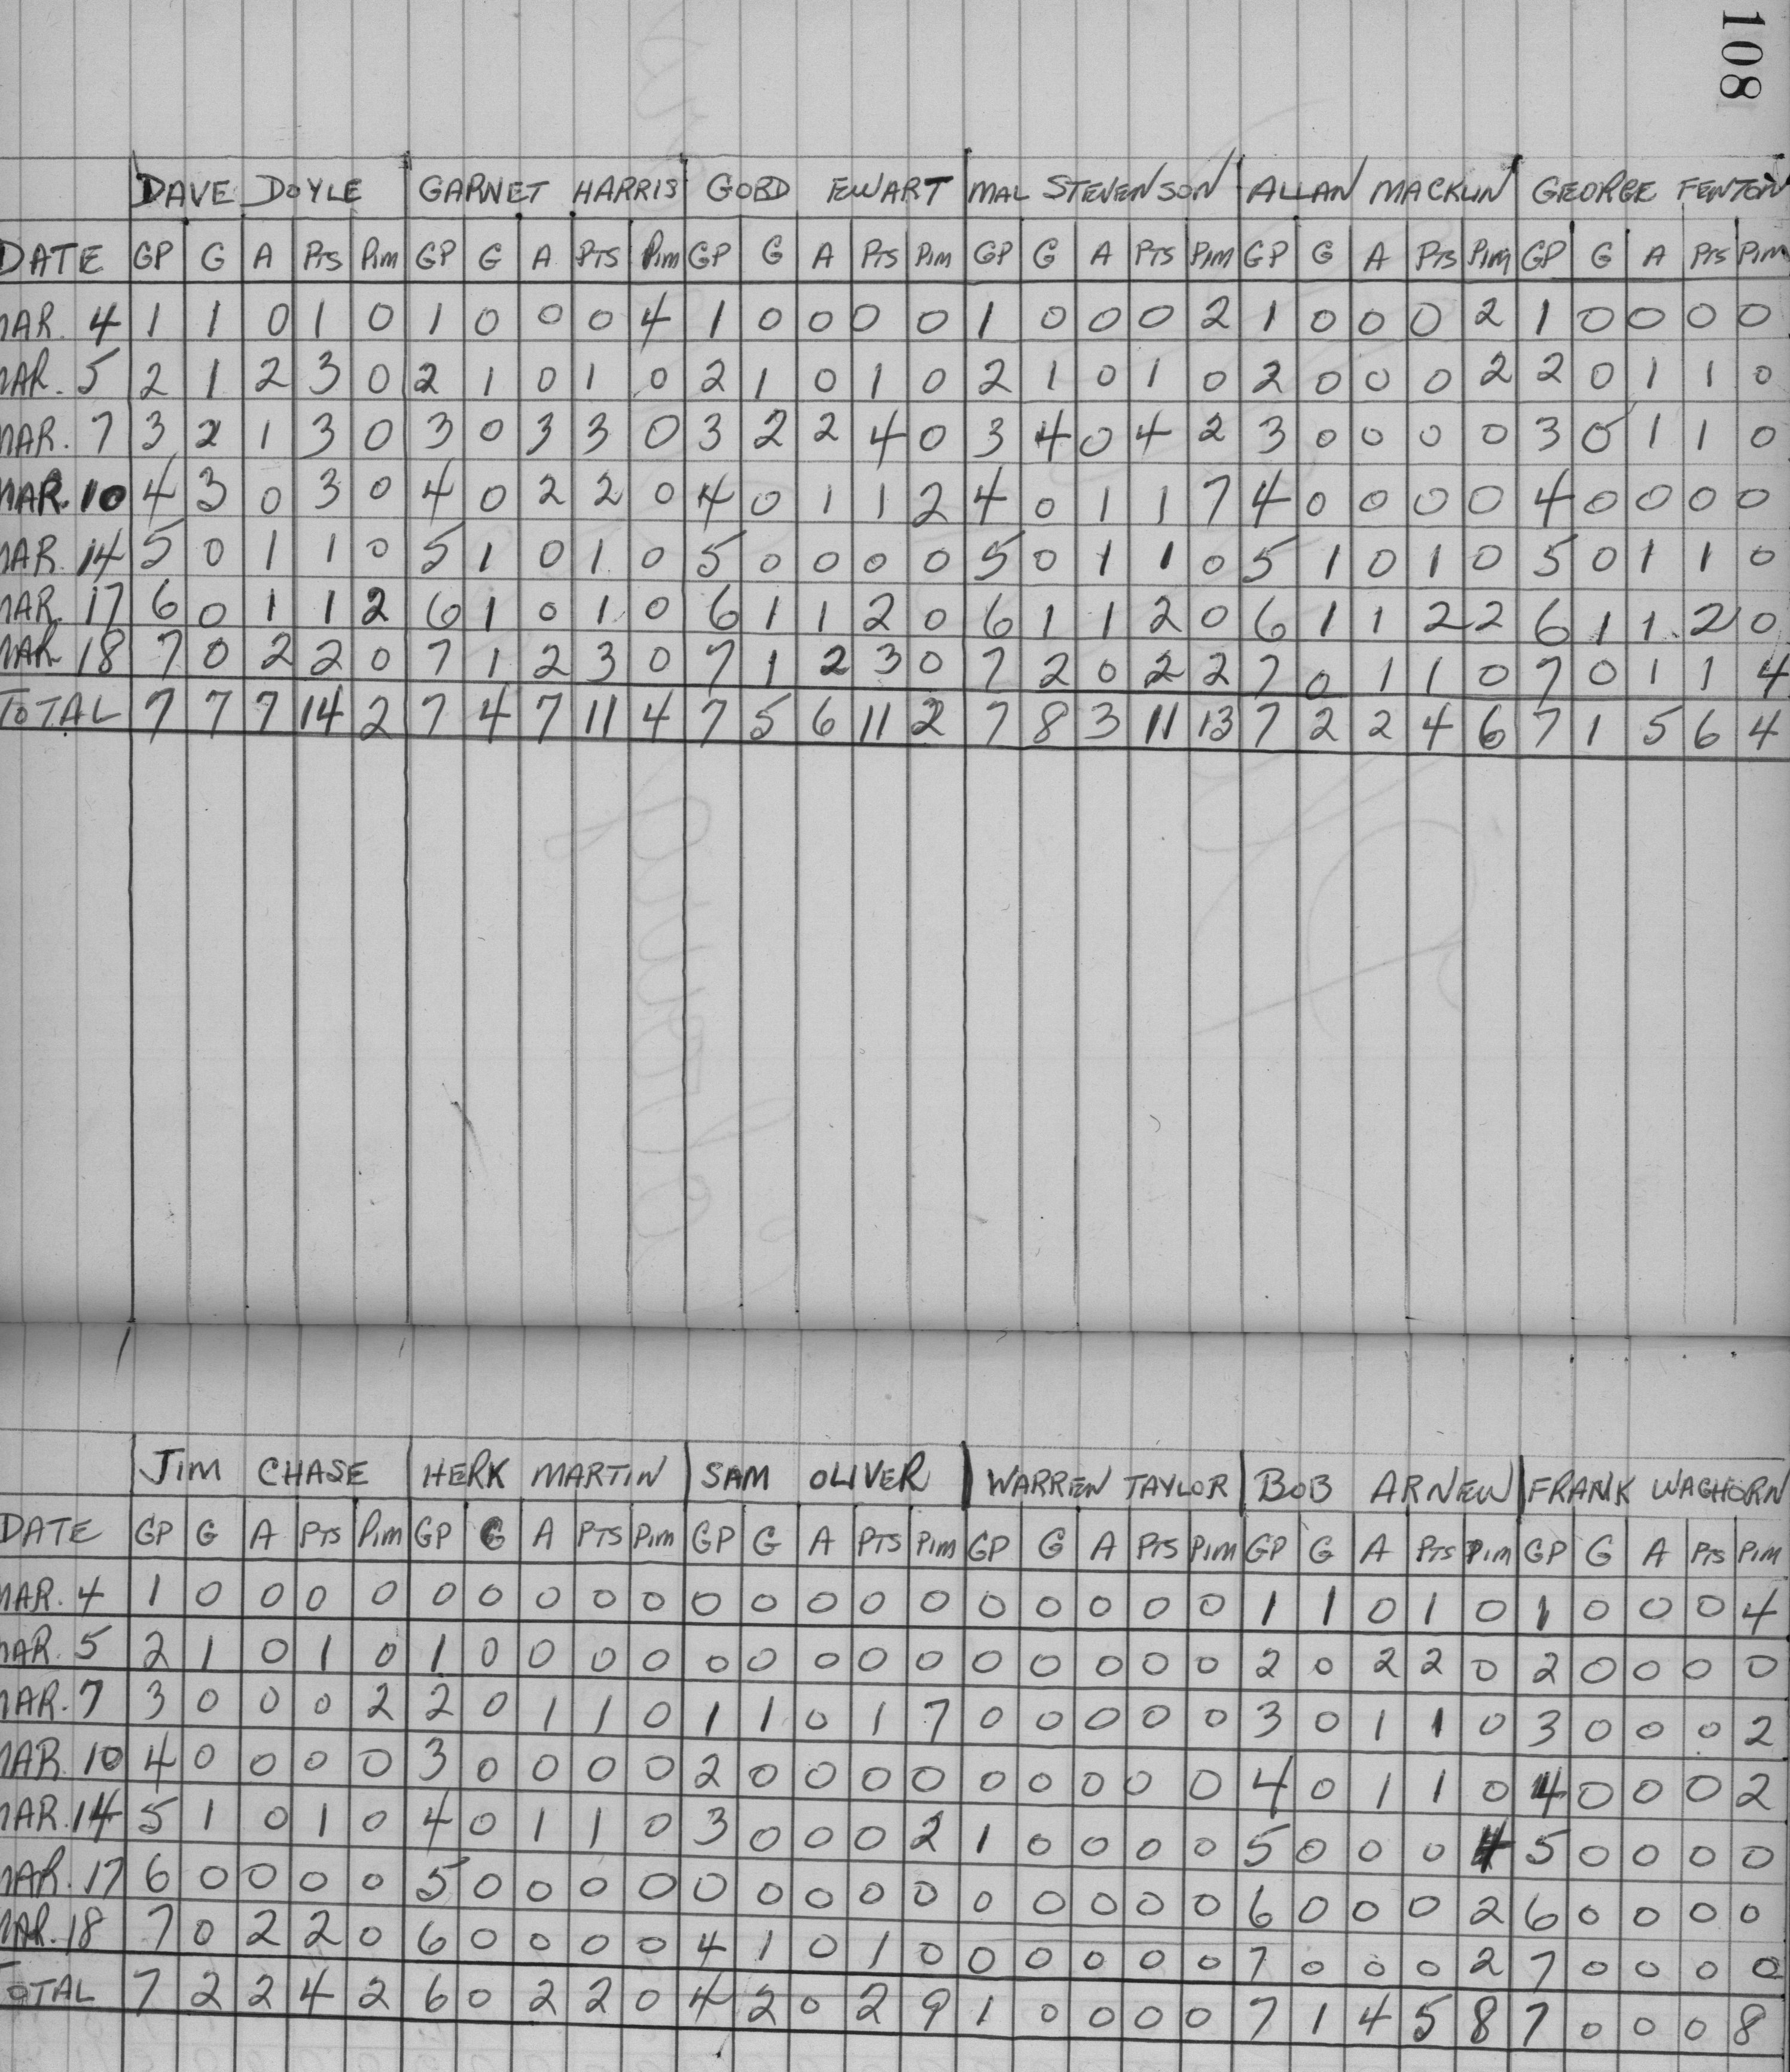 108
DAVE DOYLE GARNET HARRIS GORD EWART MAL STEVENSON ALLAN MACKLIN GEORGE FENTON
DATE GP G A PTS PIM GP G A PTS PIM GP G A PTS PIM GP G A PTS PIM GP G A PTS PIM GP G A PTS PIM
MAR. 4 1 1 0 1 0 1 0 0 0 4 1 0 0 0 0 1 0 0 0 2 1 0 0 0 2 1 0 0 0 0
MAR. 5 2 1 2 3 0 2 1 0 1 0 2 1 0 1 0 2 1 0 1 0 2 0 0 0 2 2 0 1 1 0
MAR. 7 3 2 1 3 0 3 0 3 3 0 3 2 2 4 0 3 4 0 4 2 3 0 0 0 0 3 0 1 1 0
MAR. 10 4 3 0 3 0 4 0 2 2 0 4 0 1 1 2 4 0 1 1 7 4 0 0 0 0 4 0 0 0 0
MAR. 14 5 0 1 1 0 5 1 0 1 0 5 0 0 0 0 5 0 1 1 0 5 1 0 1 0 5 0 1 1 0
MAR. 17 6 0 1 1 2 6 1 0 1 0 6 1 1 2 0 6 1 1 2 0 6 1 1 2 2 6 1 1 2 0
MAR 18 7 0 2 2 0 7 1 2 3 0 7 1 2 3 0 7 2 0 2 2 7 0 1 1 0 7 0 1 1 4
TOTAL 7 7 7 14 2 7 4 7 11 4 7 5 6 11 2 7 8 3 11 13 7 2 2 4 6 7 1 5 6 4
JIM CHASE HERK MARTIN SAM OLIVER WARREN TAYLOR BOB ARNEW FRANK WAGHORN
DATE GP G A PTS PIM GP G A PTS PIM GP G A PTS PIM GP G A PTS PIM GP G A PTS PIM GP G A PTS PIM
MAR. 4 1 0 0 0 0 0 0 0 0 0 0 0 0 0 0 0 0 0 0 0 1 1 0 1 0 1 0 0 0 4
MAR. 5 2 1 0 1 0 1 0 0 0 0 0 0 0 0 0 0 0 0 0 0 2 0 2 2 0 2 0 0 0 0
MAR. 7 3 0 0 0 2 2 0 1 1 0 1 1 0 1 7 0 0 0 0 0 3 0 1 1 0 3 0 0 0 2
MAR. 10 4 0 0 0 0 3 0 0 0 0 2 0 0 0 0 0 0 0 0 0 4 0 1 1 0 4 0 0 0 2
MAR. 14 5 1 0 1 0 4 0 1 1 0 3 0 0 0 2 1 0 0 0 0 5 0 0 0 4 5 0 0 0 0
MAR. 17 6 0 0 0 0 5 0 0 0 0 0 0 0 0 0 0 0 0 0 0 6 0 0 0 2 6 0 0 0 0
MAR. 18 7 0 2 2 0 6 0 0 0 0 4 1 0 1 0 0 0 0 0 0 7 0 0 0 2 7 0 0 0 0
TOTAL 7 2 2 4 2 6 0 2 2 0 4 2 0 2 9 1 0 0 0 0 7 1 4 5 8 7 0 0 0 8